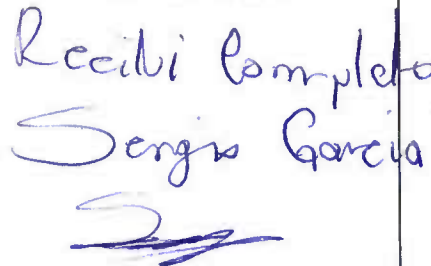 Recibi Completo
Sergio Garcia